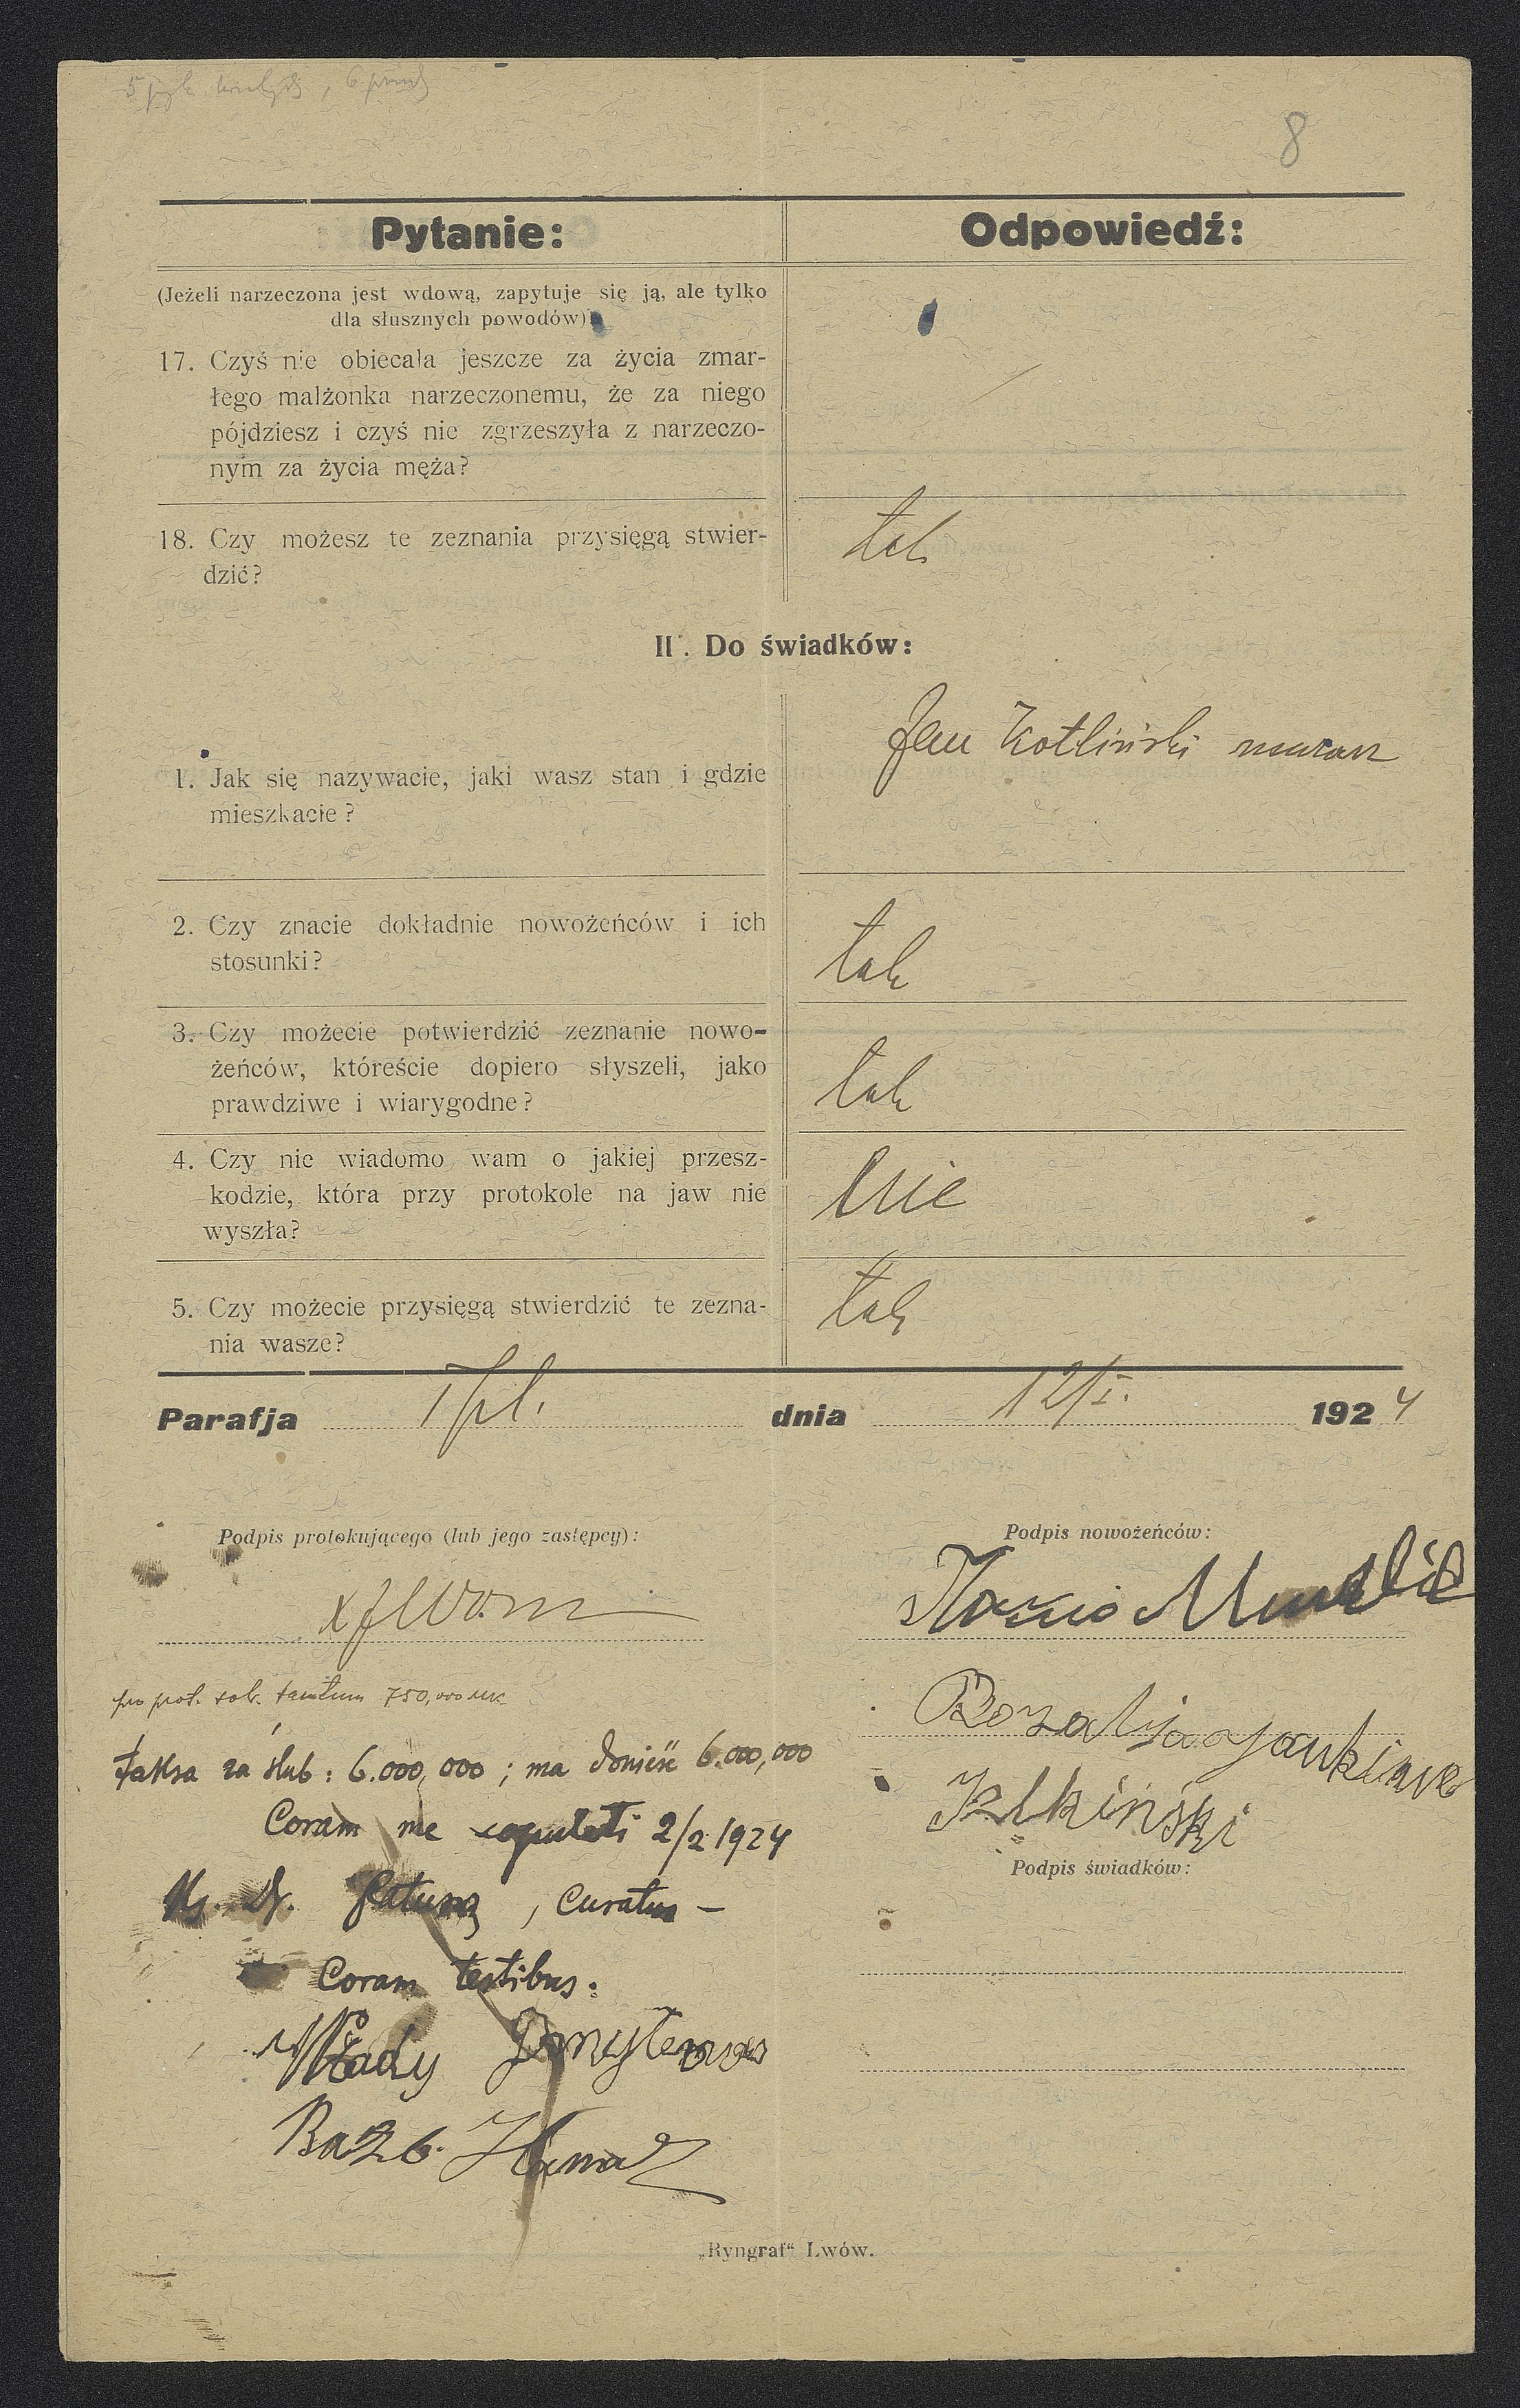 8
Pytanie:
Odpowiedź:
(Jeżeli narzeczona jest wdową, zapytuje się ją, ale tylko
dla słusznych powodów)
17. Czyś nie obiecała jeszcze za życia zmar-
łego małżonka narzeczonemu, że za niego
pójdziesz i czyś nie zgrzeszyła z narzeczo-
nym za życia męża?
18. Czy możesz te zeznania przysięgą stwier-
dzić?
tak
II. Do świadków:
1. Jak się nazywacie, jaki wasz stan i gdzie
mieszkacie?
Jan Kotliński murarz
2. Czy znacie dokładnie nowożeńców i ich
stosunki?
tak
3. Czy możecie potwierdzić zeznanie nowo-
żeńców, któreście dopiero słyszeli, jako
prawdziwe i wiarygodne?
tak
4. Czy nie wiadomo wam o jakiej przesz-
kodzie, która przy protokole na jaw nie
wyszła?
nie
5. Czy możecie przysięgą stwierdzić te zezna-
nia wasze?
tak
Parafja dnia 12/I. 1924
Podpis protokującego (lub jego zastępcy):
Podpis nowożeńców:
pro prot. sol. tantum 750,000 mk
Rozalja
taksa za ślub: 6.000,000; ma donieść 6.000,000
Coram me copulati 2/2 1924
Podpis świadków:
Ks. Dr. , Curatus –
Coram testibus:
Włady
„Ryngraf“ Lwów.